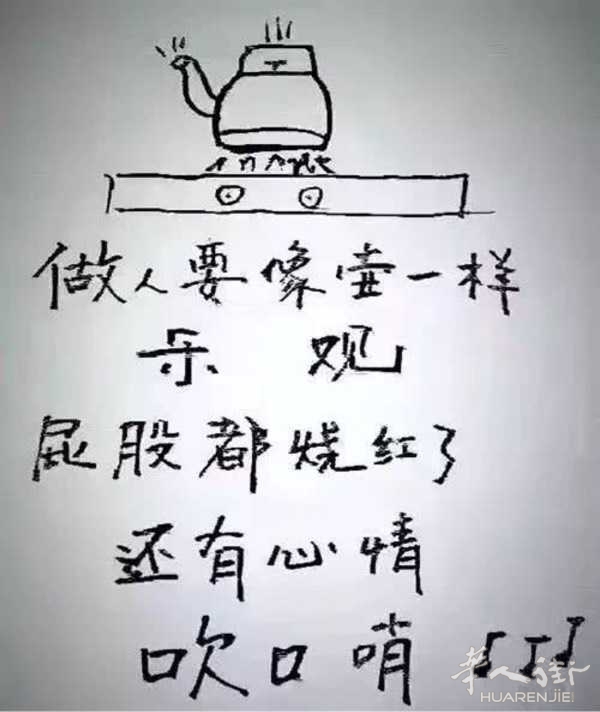 做人要像壶一样
乐观
屁股都烧红了
还有心情
吹口哨
华人街
HUARENJIE